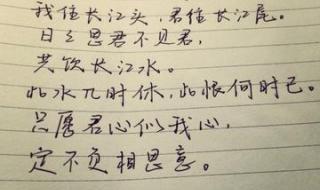 我住长江头，君住长江尾。
日日思君不见君，
共饮长江水。
此水几时休，此恨何时已。
只愿君心似我心，
定不负相思意。